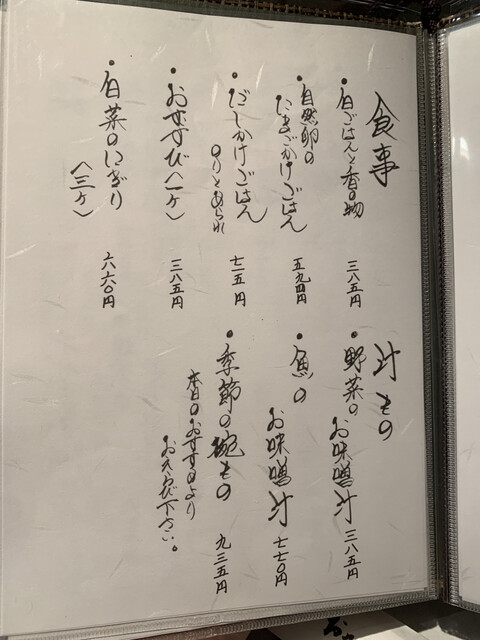 食事
・白ごはんと香の物 三八五円
・自然卵の
たまごかけごはん 五九四円
・だしかけごはん
のりとあられ 七一五円
・おむすび〈一ケ〉 三八五円
・白菜のにぎり
〈三ケ〉 六六〇円
汁もの
・野菜の
お味噌汁 三八五円
・魚の
お味噌汁 七七〇円
・季節の椀もの 九三五円
本日のおすすめより
おえらび下さい。